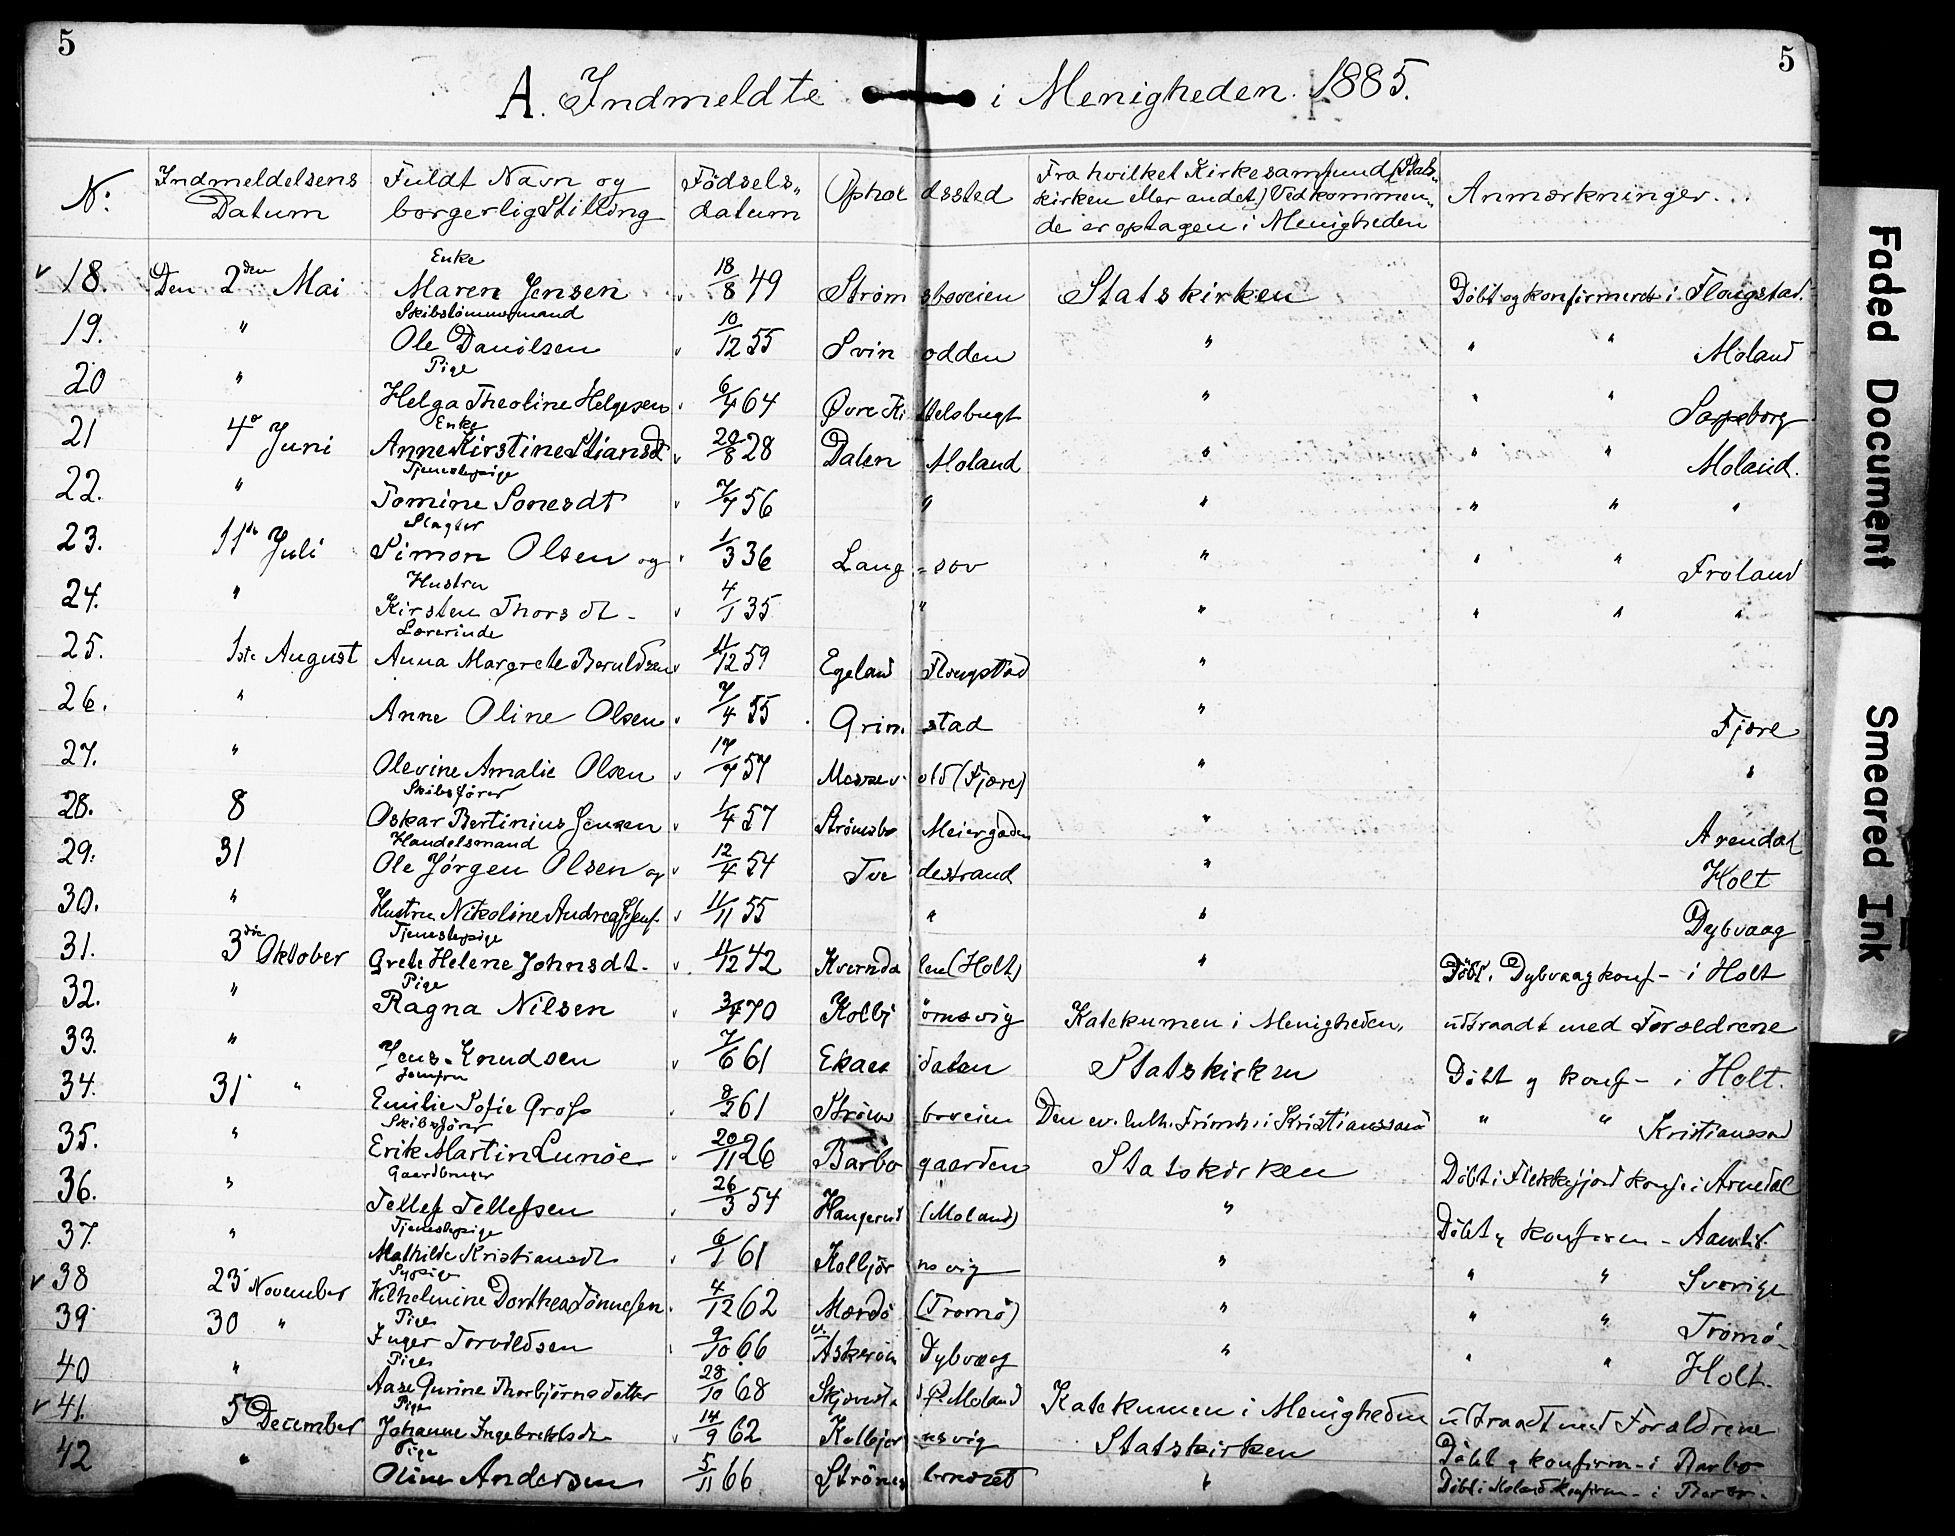 5 5
A. Indmeldte i Menigheden. 1885.
N: Indmeldelsens Datum Fuldt Navn og borgerlig Stilling Fødsels„ datum Opholdssted Fra hvilket Kirkesamfund (Stats„ kirken eller andet) Vedkommen„ de er optagen i Menigheden Anmærkninger.
Enke
v 18. Den 2den Mai Maren Jensen 18/8 49 Strømsboveien Statskirken Døbt og konfirmeret i Flougstad.
Skibstømmermand
19. " Ole Danilsen v 10/12 55 Svinodden " " " Moland
Pige
20 " Helga Theoline Helgesen 6/4 64 Øvre Kittelsbugt " " " Sarpsborg
Enke
21 4de Juni Anne Kirstine Stiansd v 20/8 28 Dalen Moland " " " Moland.
Tjenestepige
22. " Tomine Sonesdt v 7/7 56 " " " " "
Slagter
23. 11te Juli Simon Olsen og 1/3 36 Lang=sov " " " Froland
Hustru
24. " Kirsten Thorsdt - v 4/1 35 " " " " "
Lærerinde
25. 1ste August Anna Margrete Beruldsen v 11/12 59 Egeland Flougstad "
26. " Anne Oline Olsen 7/4 55 Grimstad " Fjære
27. " Olevine Amalie Olsen v 17/7 57 Messevold (Fjære) " "
Skibsfører
28. 8 Oskar Bertinius Jensen v 1/4 57 Strømsbo Meiergaden " Arendal
Handelsmand
29. 31 Ole Jørgen Olsen og v 12/4 54 Tvedestrand " Holt
30. " Hustru Nikoline Andrea v 11/11 55 " " Dybvaag
Tjenestepige
31. 3die Oktober Grete Helene Johnsdt. v 11/12 42 Kverndalen (Holt) " Døbt. Dybvaag konf - i Holt
Pige
32. " Ragna Nilsen v 3/4 70 Kolbjörnsvig Katekumen i Menigheden, udtraadt med Forældrene
33. " Jens Knudsen v 7/6 61 Ekaasdalen Statskirken Døbt og konf - i Holt.
Jomfru
34. 31 " Emilie Sofie Gross 8/2 61 Strømsboveien Den ev. luth. Frimh. i Kristianssand " " Kristianssand
Skibsfører
35. " Erik Martin Lunöe 20/11 26 Barbogaarden Statskirken Døbt i Flekkefjord konf. i Arendal
Gaardbruger
36. " Tellef Tellefsen 26/3 54 (Moland) " Døbt og konfirm - Aamlid.
Tjenestepige
37. " Mathilde Kristiansdt 6/1 61 Kolbjørnsvig " " " Sverige
Sypige
v 38 23 November Wilhelmine Dorthea Tønnesen. 4/12 62 Mærdø (Tromø) " " " Tromø
Pige
39 30 " Inger Torvildsen 9/10 66 v. Askerøen Dybvaag " " " Holt.
Pige
40 " Aase Gurine Thorbjørnsdatter 28/10 68 Ø Moland Katekumen i Menigheden udtraadt med Forældrene
Pige
v 41. 5te December Johanne Ingebretsdt v 14/9 62 Kolbjørnsvig Statskirken Døbt og konfirm - i Barbo
Pige
42 " Oline Andersen 5/11 66 Strømsbo " Døbt i Moland konfirm - i Barbo.
Faded Document
Smeared Ink